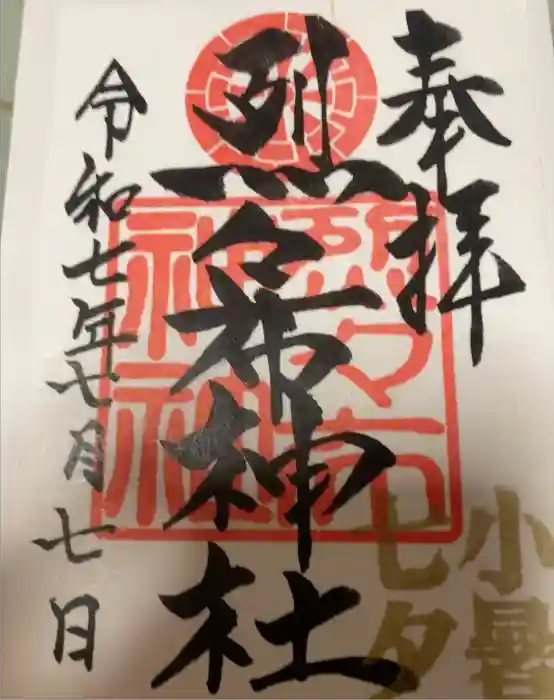 奉拝
烈々布神社
令和七年七月七日
小暑
七夕
烈々布
神社